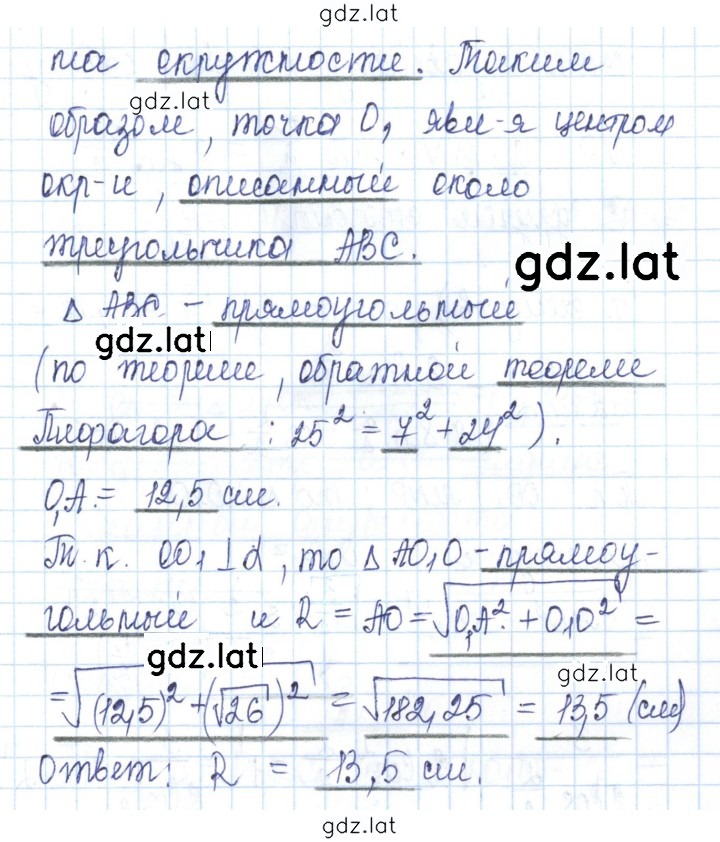 gdz.lat
на окружности. Таким
gdz.lat
образом, точка O₁ явл-я центром
окр-и, описанный около
треугольника ABC.
gdz.lat
Δ ABC - прямоугольный
gdz.lat
(по теореме, обратной теореме
Пифагора : 25² = 7² + 24²).
O₁A = 12,5 см.
Т. к. OO₁ ⊥ α, то Δ AO₁O - прямоу-
гольный и R = AO = √(O₁A² + O₁O²) =
gdz.lat
gdz.lat
= √((12,5)² + (√26)²) = √182,25 = 13,5 (см)
Ответ: R = 13,5 см.
gdz.lat